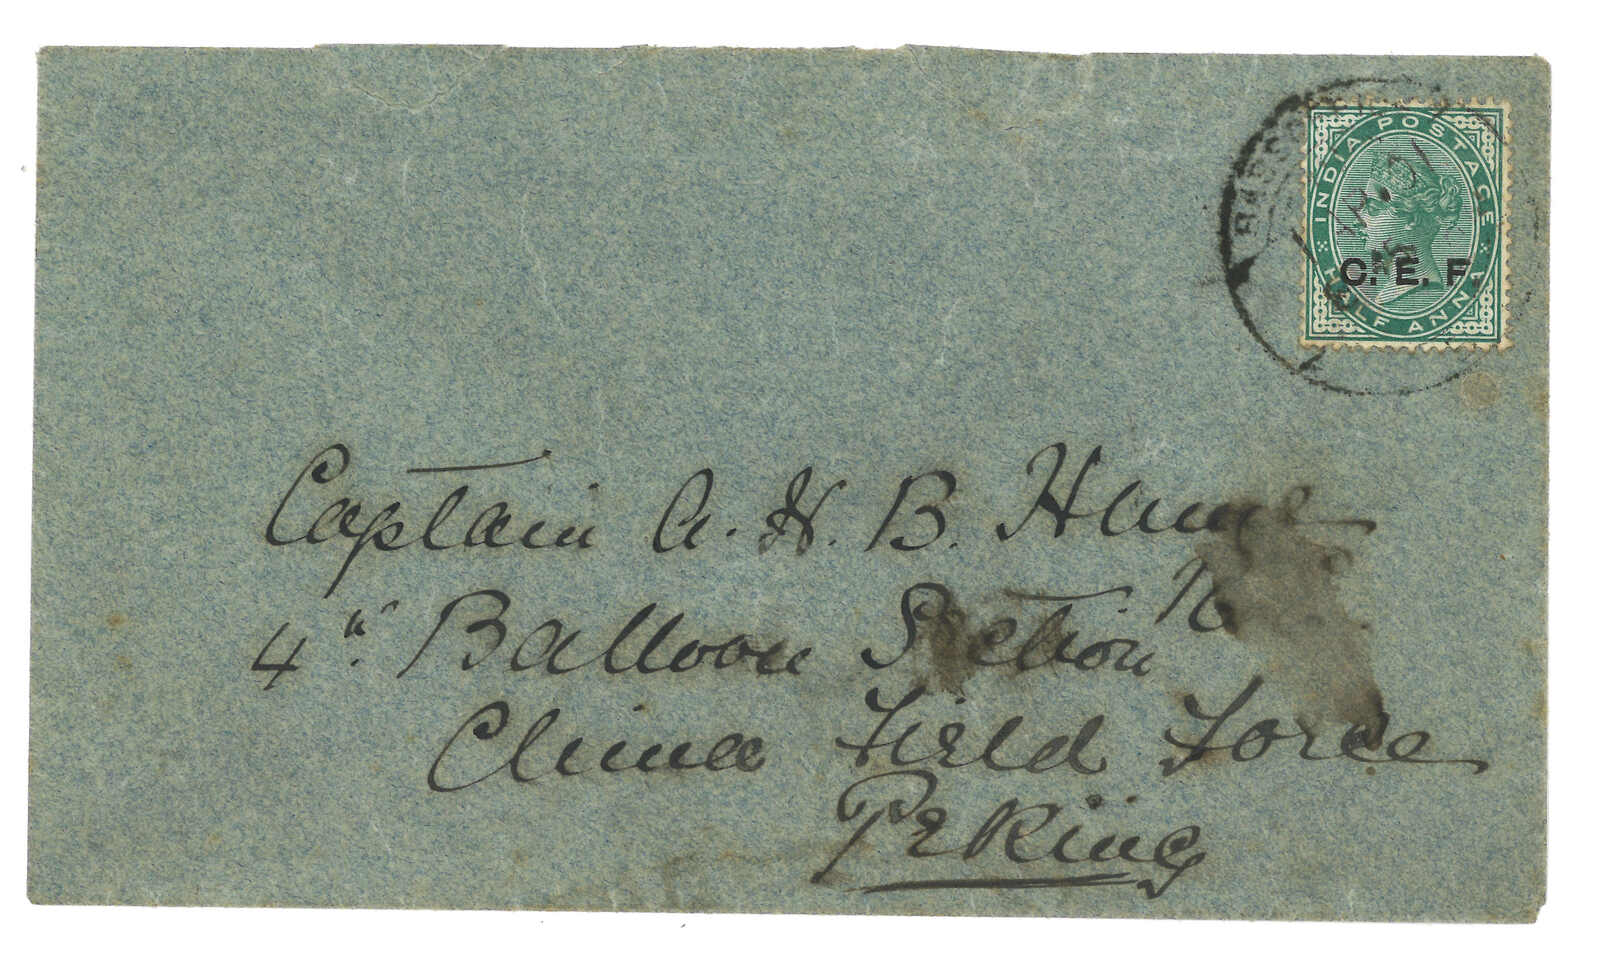 INDIA POSTAGE
C. E. F.
HALF ANNA
Captain A. H. B. Hume
4th Balloon Section
China Field Force
Peking